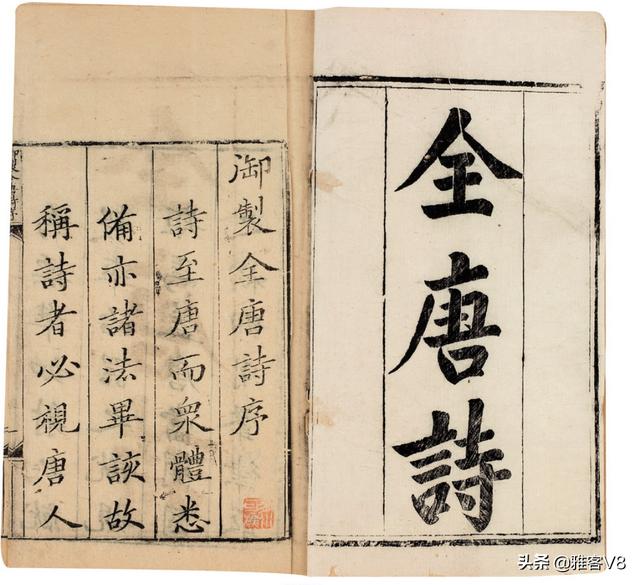 全唐詩
御製全唐詩序
詩至唐而衆體悉
備亦諸法畢該故
稱詩者必視唐人
头条 @雅客V8